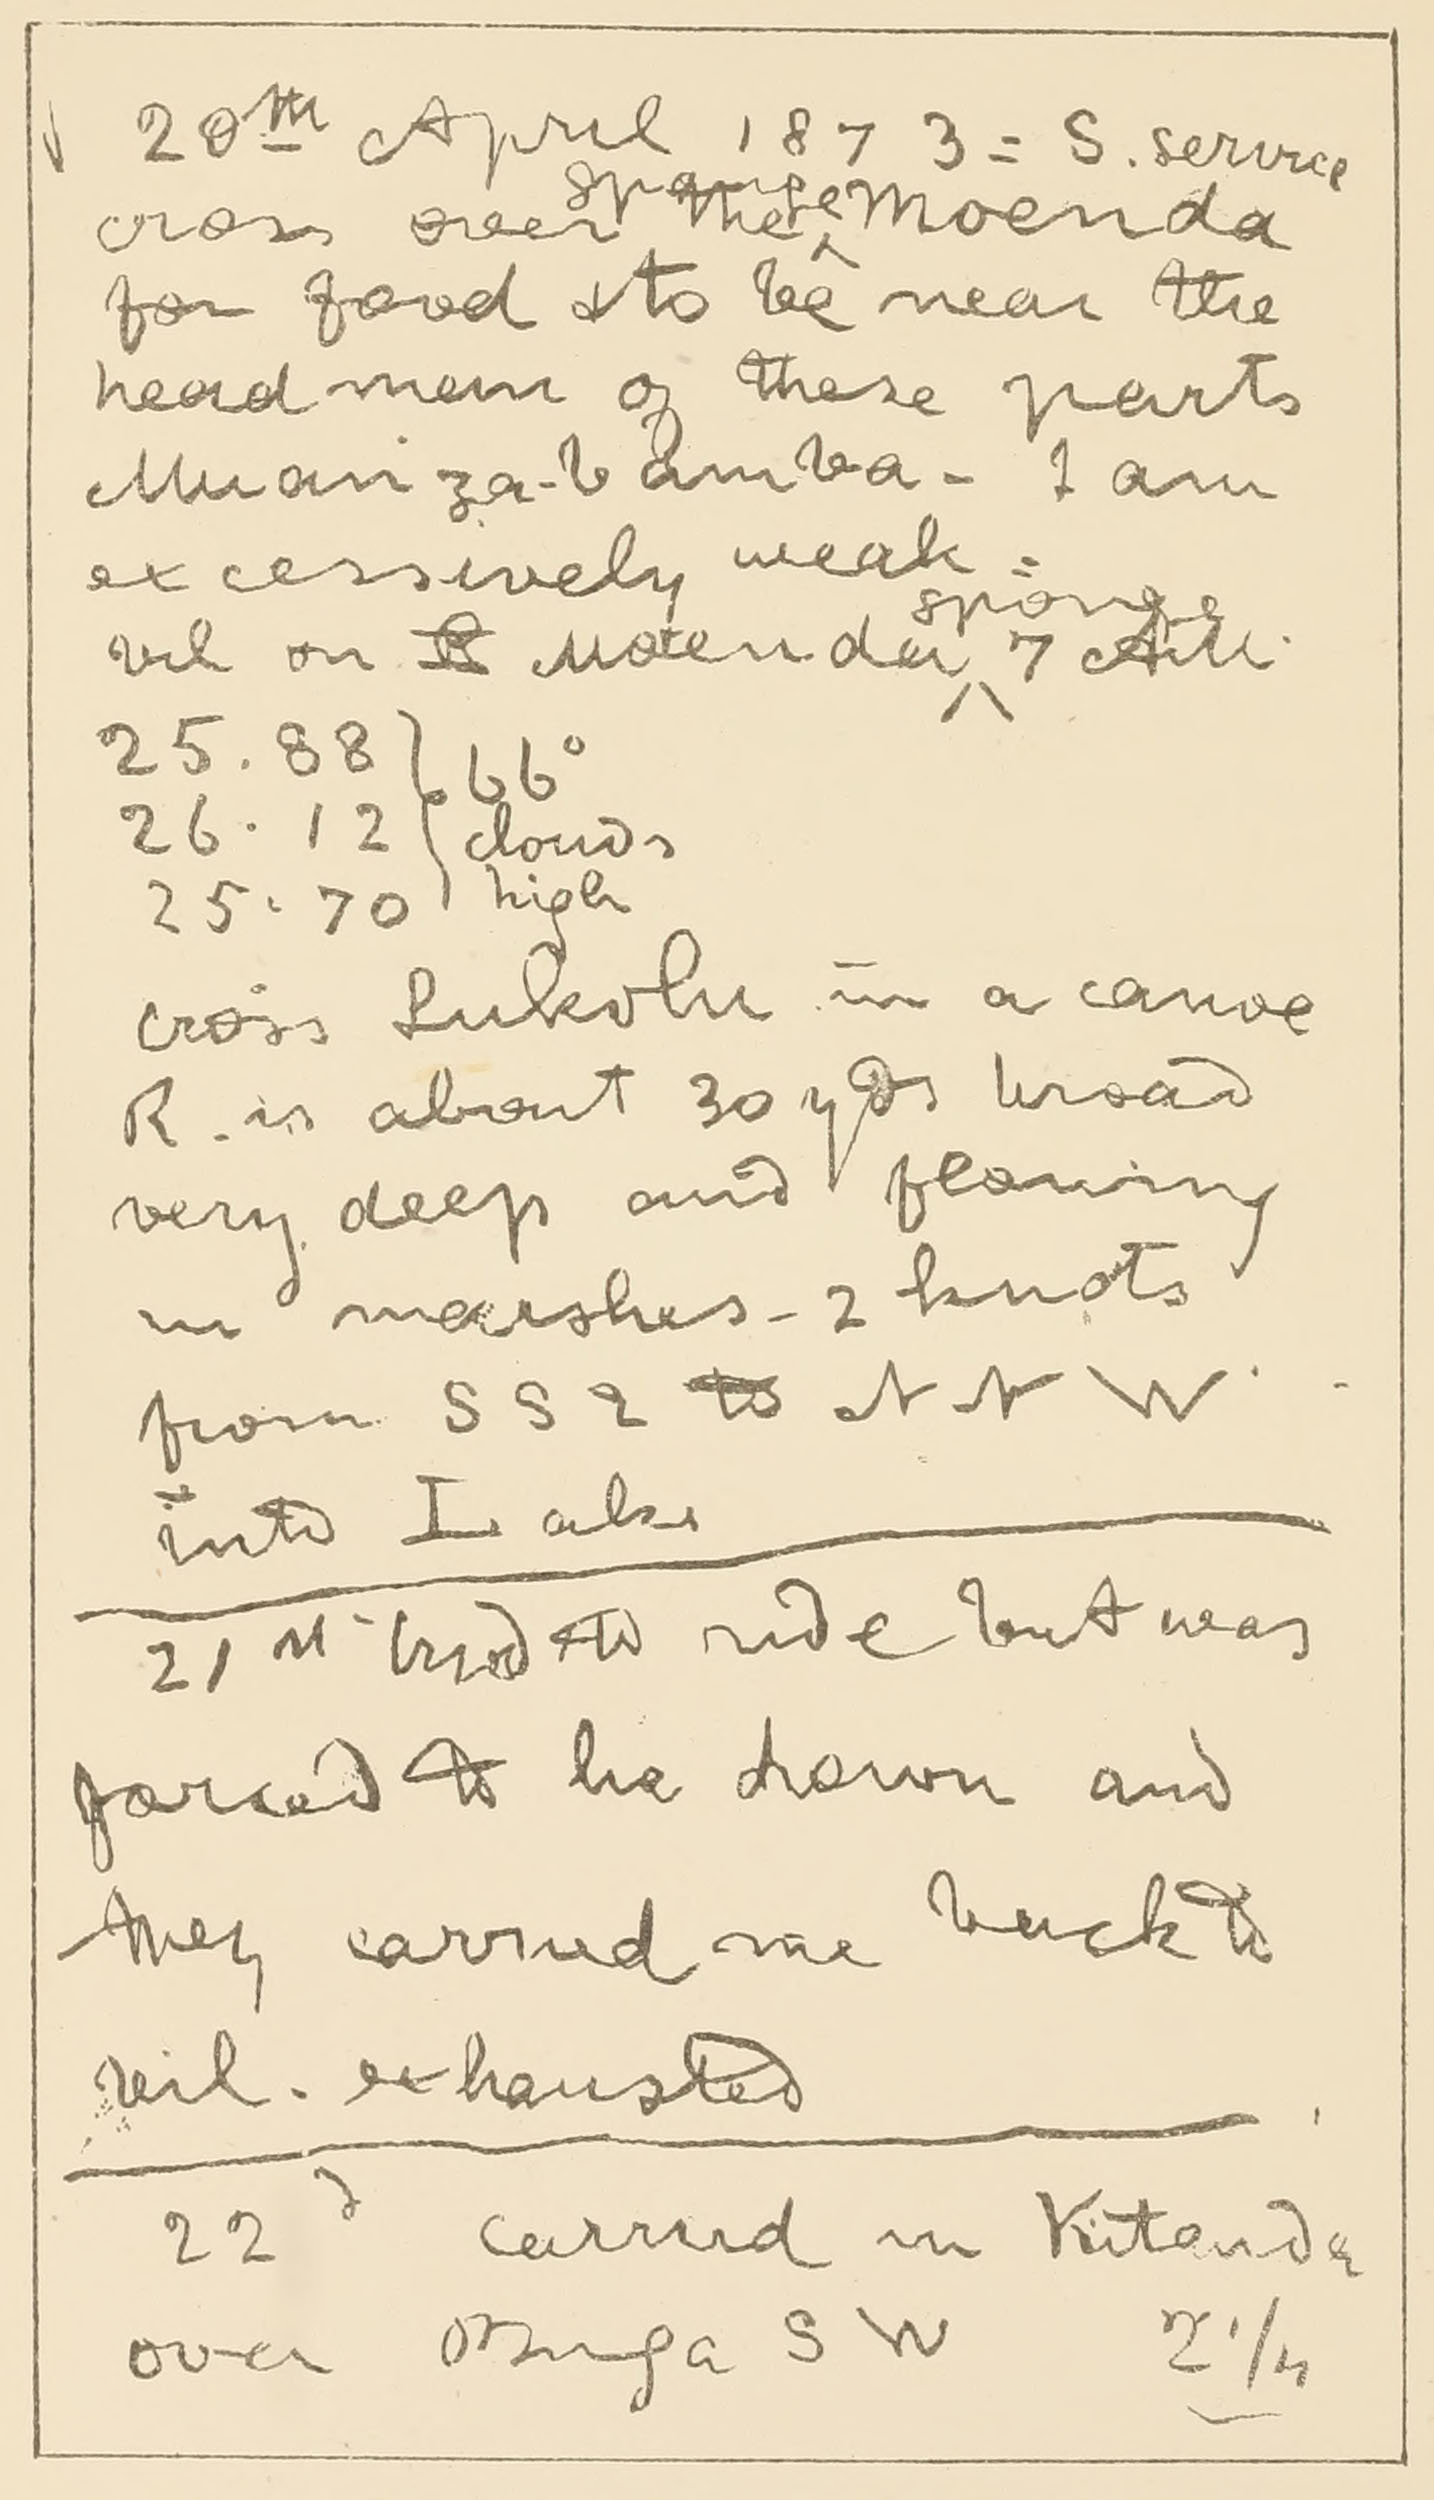 20th April 1873 = S. service
cross over the sponge Moenda
for food & to be near the
headmen of these parts
Muanza-bamba - I am
excessively weak =
vil on Moenda sponge 7 AM.
25.88 } 66°
26.12 clouds
25.70 high
cross Lukolu in a canoe
R. is about 30 yds broad
very deep and flowing
in marshes - 2 knots
from SSE to NNW.
into Lake
21st tried to ride but was
forced to lie down and
they carried me back to
vil. exhausted
22d carried in Kitanda
over Buga SW 2 1/4